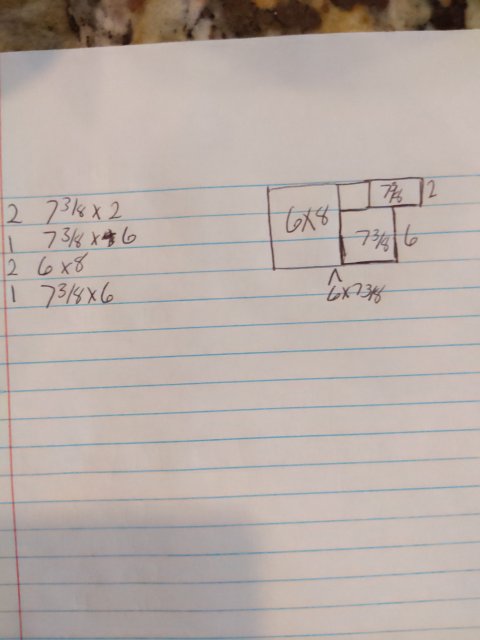 2 7 3/8 x 2
1 7 3/8 x 6
2 6 x 8
1 7 3/8 x 6
6x8
7 3/8
2
7 3/8
6
6x7 3/8